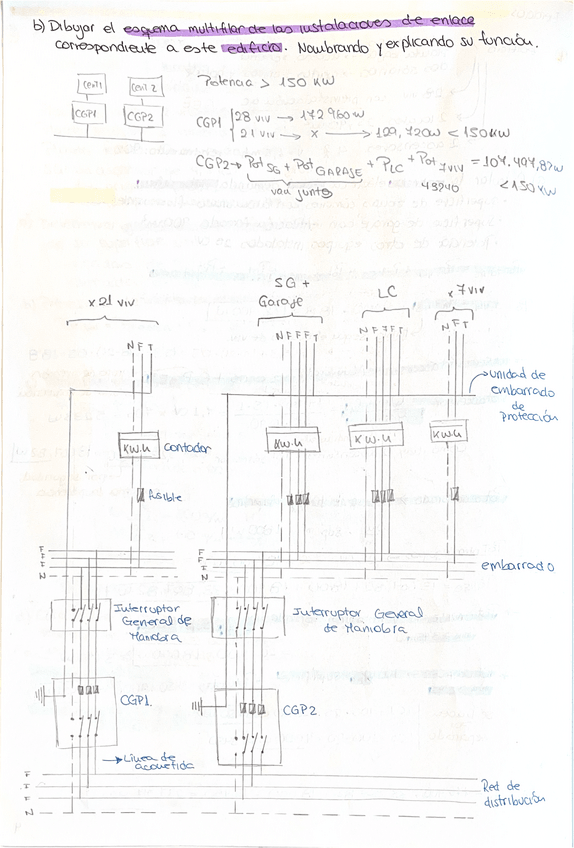 b) Dibujar el esquema multifilar de las instalaciones de enlace
correspondiente a este edificio. Nombrando y explicando su función.
Cent1 Cent2
CGP1 CGP2
Potencia > 150 KW
CGP1 { 28 viv → 172960w
21 viv → x → 129,720w < 150KW
CGP2 → Pot SG + Pot GARAJE + PLC + Pot 7viv = 104,497,87w
van juntos 43240 < 150 KW
x 21 viv
SG +
Garaje
LC
x 7 viv
N F T
N F F F T
N F F F T
N F T
unidad de
embarrado
de
protección
KW.h contador
KW.h
KW.h
KW.h
fusible
F
F
F
N
F
F
F
N
embarrado
Interruptor
General de
Maniobra
Interruptor General
de Maniobra
CGP1.
CGP2
→ Linea de
acometida
F
F
F
N
Red de
distribución